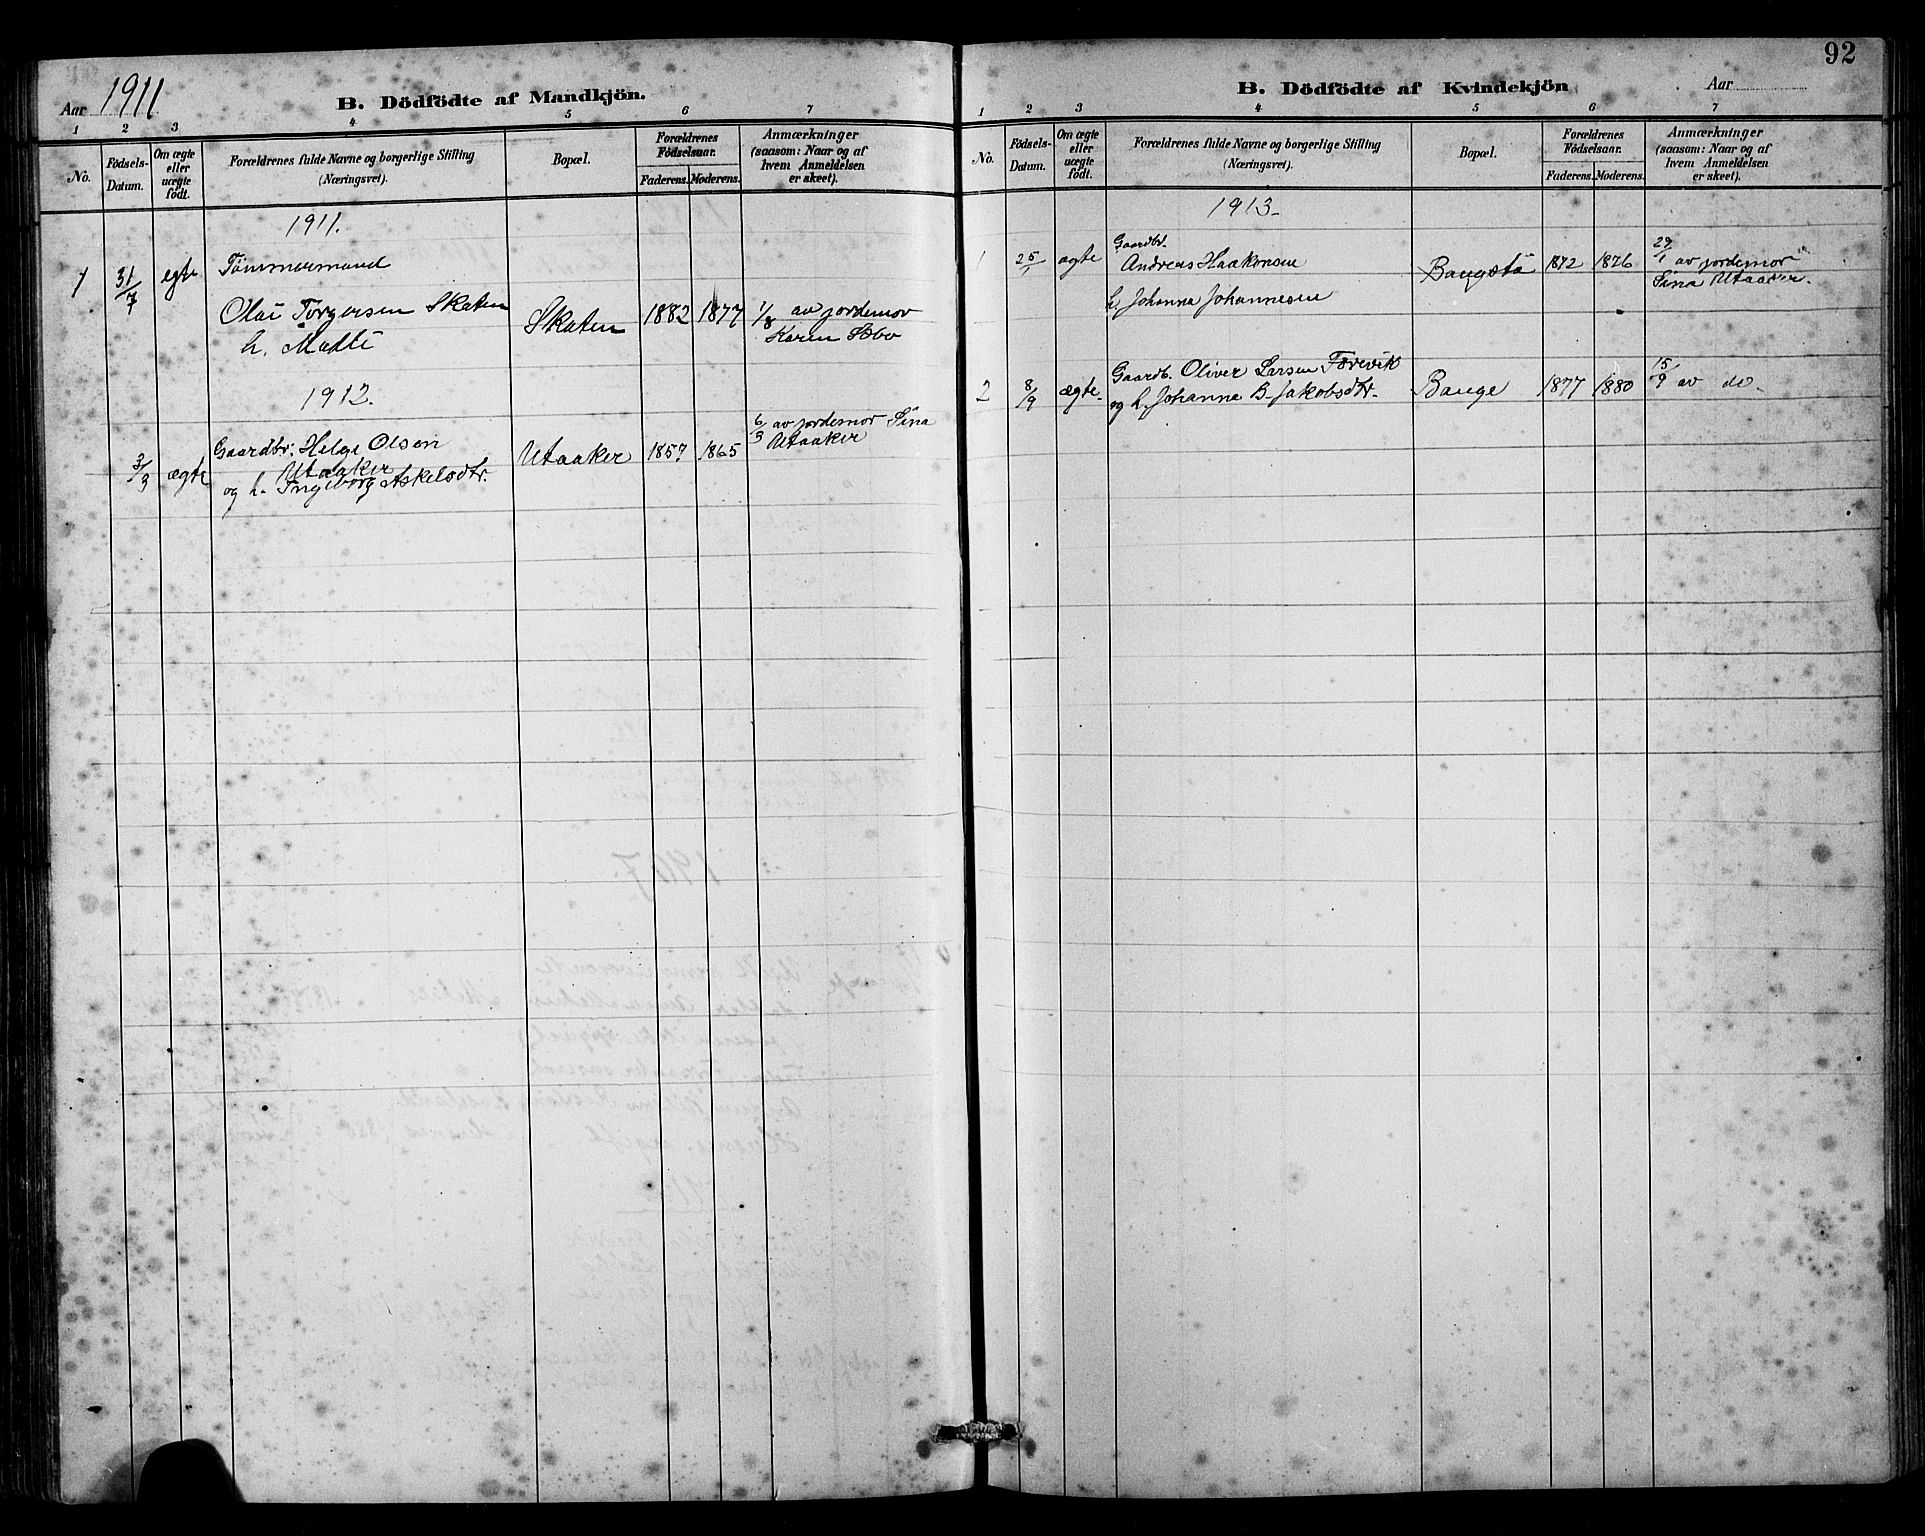 Aar 1911
B. Dödfödte af Mandkjön.
1 2 3 4 5 6 7
No.
Födsels-Datum.
Om ægte eller uægte födt.
Forældrenes fulde Navne og borgerlige Stilling (Næringsvei).
Bopæl.
Forældrenes Födselsaar.
Faderens. Moderens.
Anmærkninger (saasom: Naar og af hvem Anmeldelsen er skeet).
1911.
1 31/7 egte Tömmermand
Olai Torgersen Skaten Skaten 1882 1877 1/8 av jordemor
h. Malli Karen Æbø
1912.
3/3 ægte Gaardbr. Helge Olsen Utaaker 1857 1865 6/3 av jordemor Sina
Utaaker Utaaker
og h. Ingeborg Askelsdtr.
92
B. Dödfödte af Kvindekjön
Aar
1 2 3 4 5 6 7
No.
Födsels-Datum.
Om ægte eller uægte födt.
Forældrenes fulde Navne og borgerlige Stilling (Næringsvei).
Bopæl.
Forældrenes Födselsaar.
Faderens. Moderens.
Anmærkninger (saasom: Naar og af hvem Anmeldelsen er skeet).
1913
1 25/1 ægte Gaardbr.
Andreas Haakonsen Baugstø 1872 1876 29/1 av jordemor
h. Johanna Johannesen Sina Utaaker.
2 8/9 ægte. Gaardb. Oliver Larsen Forevik Bauge 1877 1880 15/9 av do.
og h. Johanna B. Jakobsdtr.